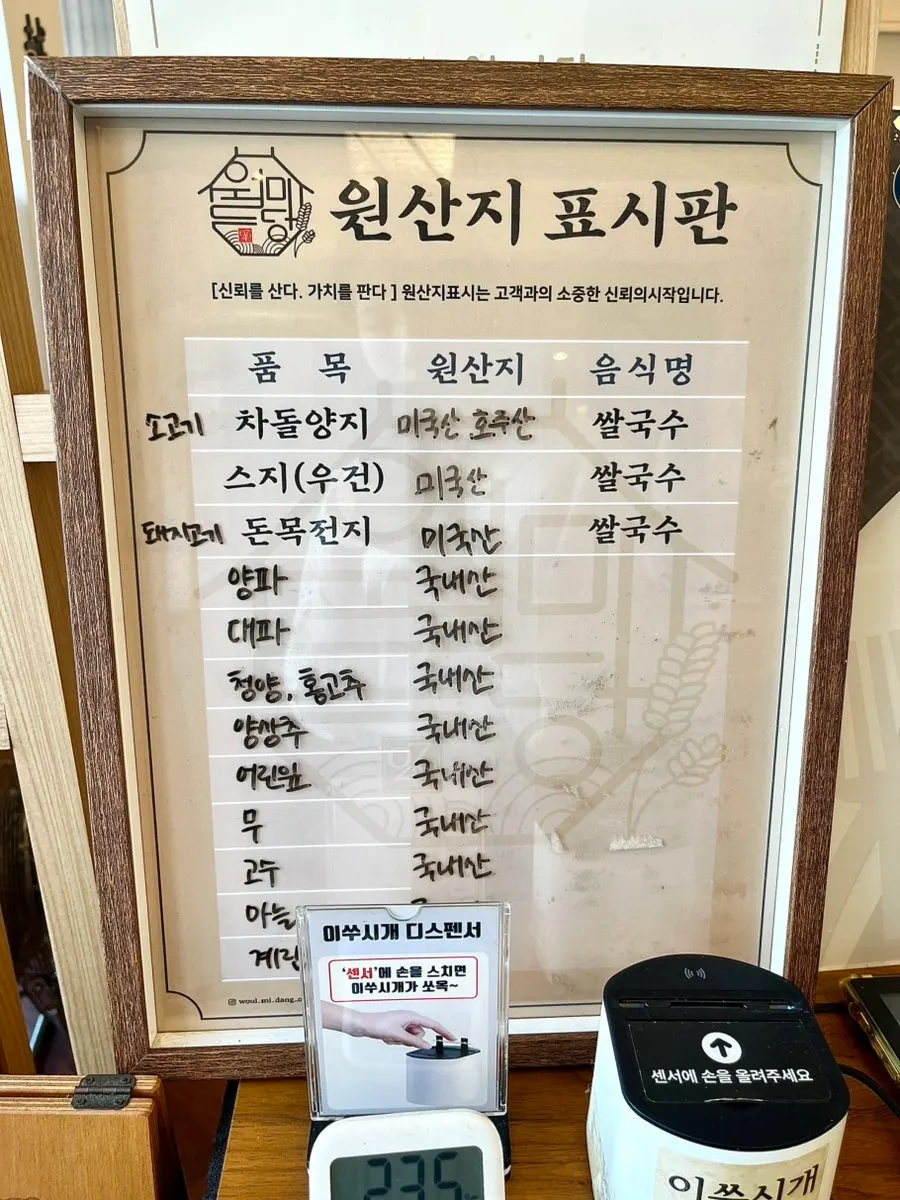 월미당
원산지 표시판
[신뢰를 산다. 가치를 판다 ] 원산지표시는 고객과의 소중한 신뢰의시작입니다.
품 목 원산지 음식명
소고기 차돌양지 미국산 호주산 쌀국수
스지(우건) 미국산 쌀국수
돼지고기 돈목전지 미국산 쌀국수
양파 국내산
대파 국내산
청양, 홍고추 국내산
양상추 국내산
어린잎 국내산
무 국내산
고수 국내산
마늘
계란
woul.mi.dang
이쑤시개 디스펜서
'센서'에 손을 스치면
이쑤시개가 쏘옥~
센서에 손을 올려주세요
23.5
이쑤시개